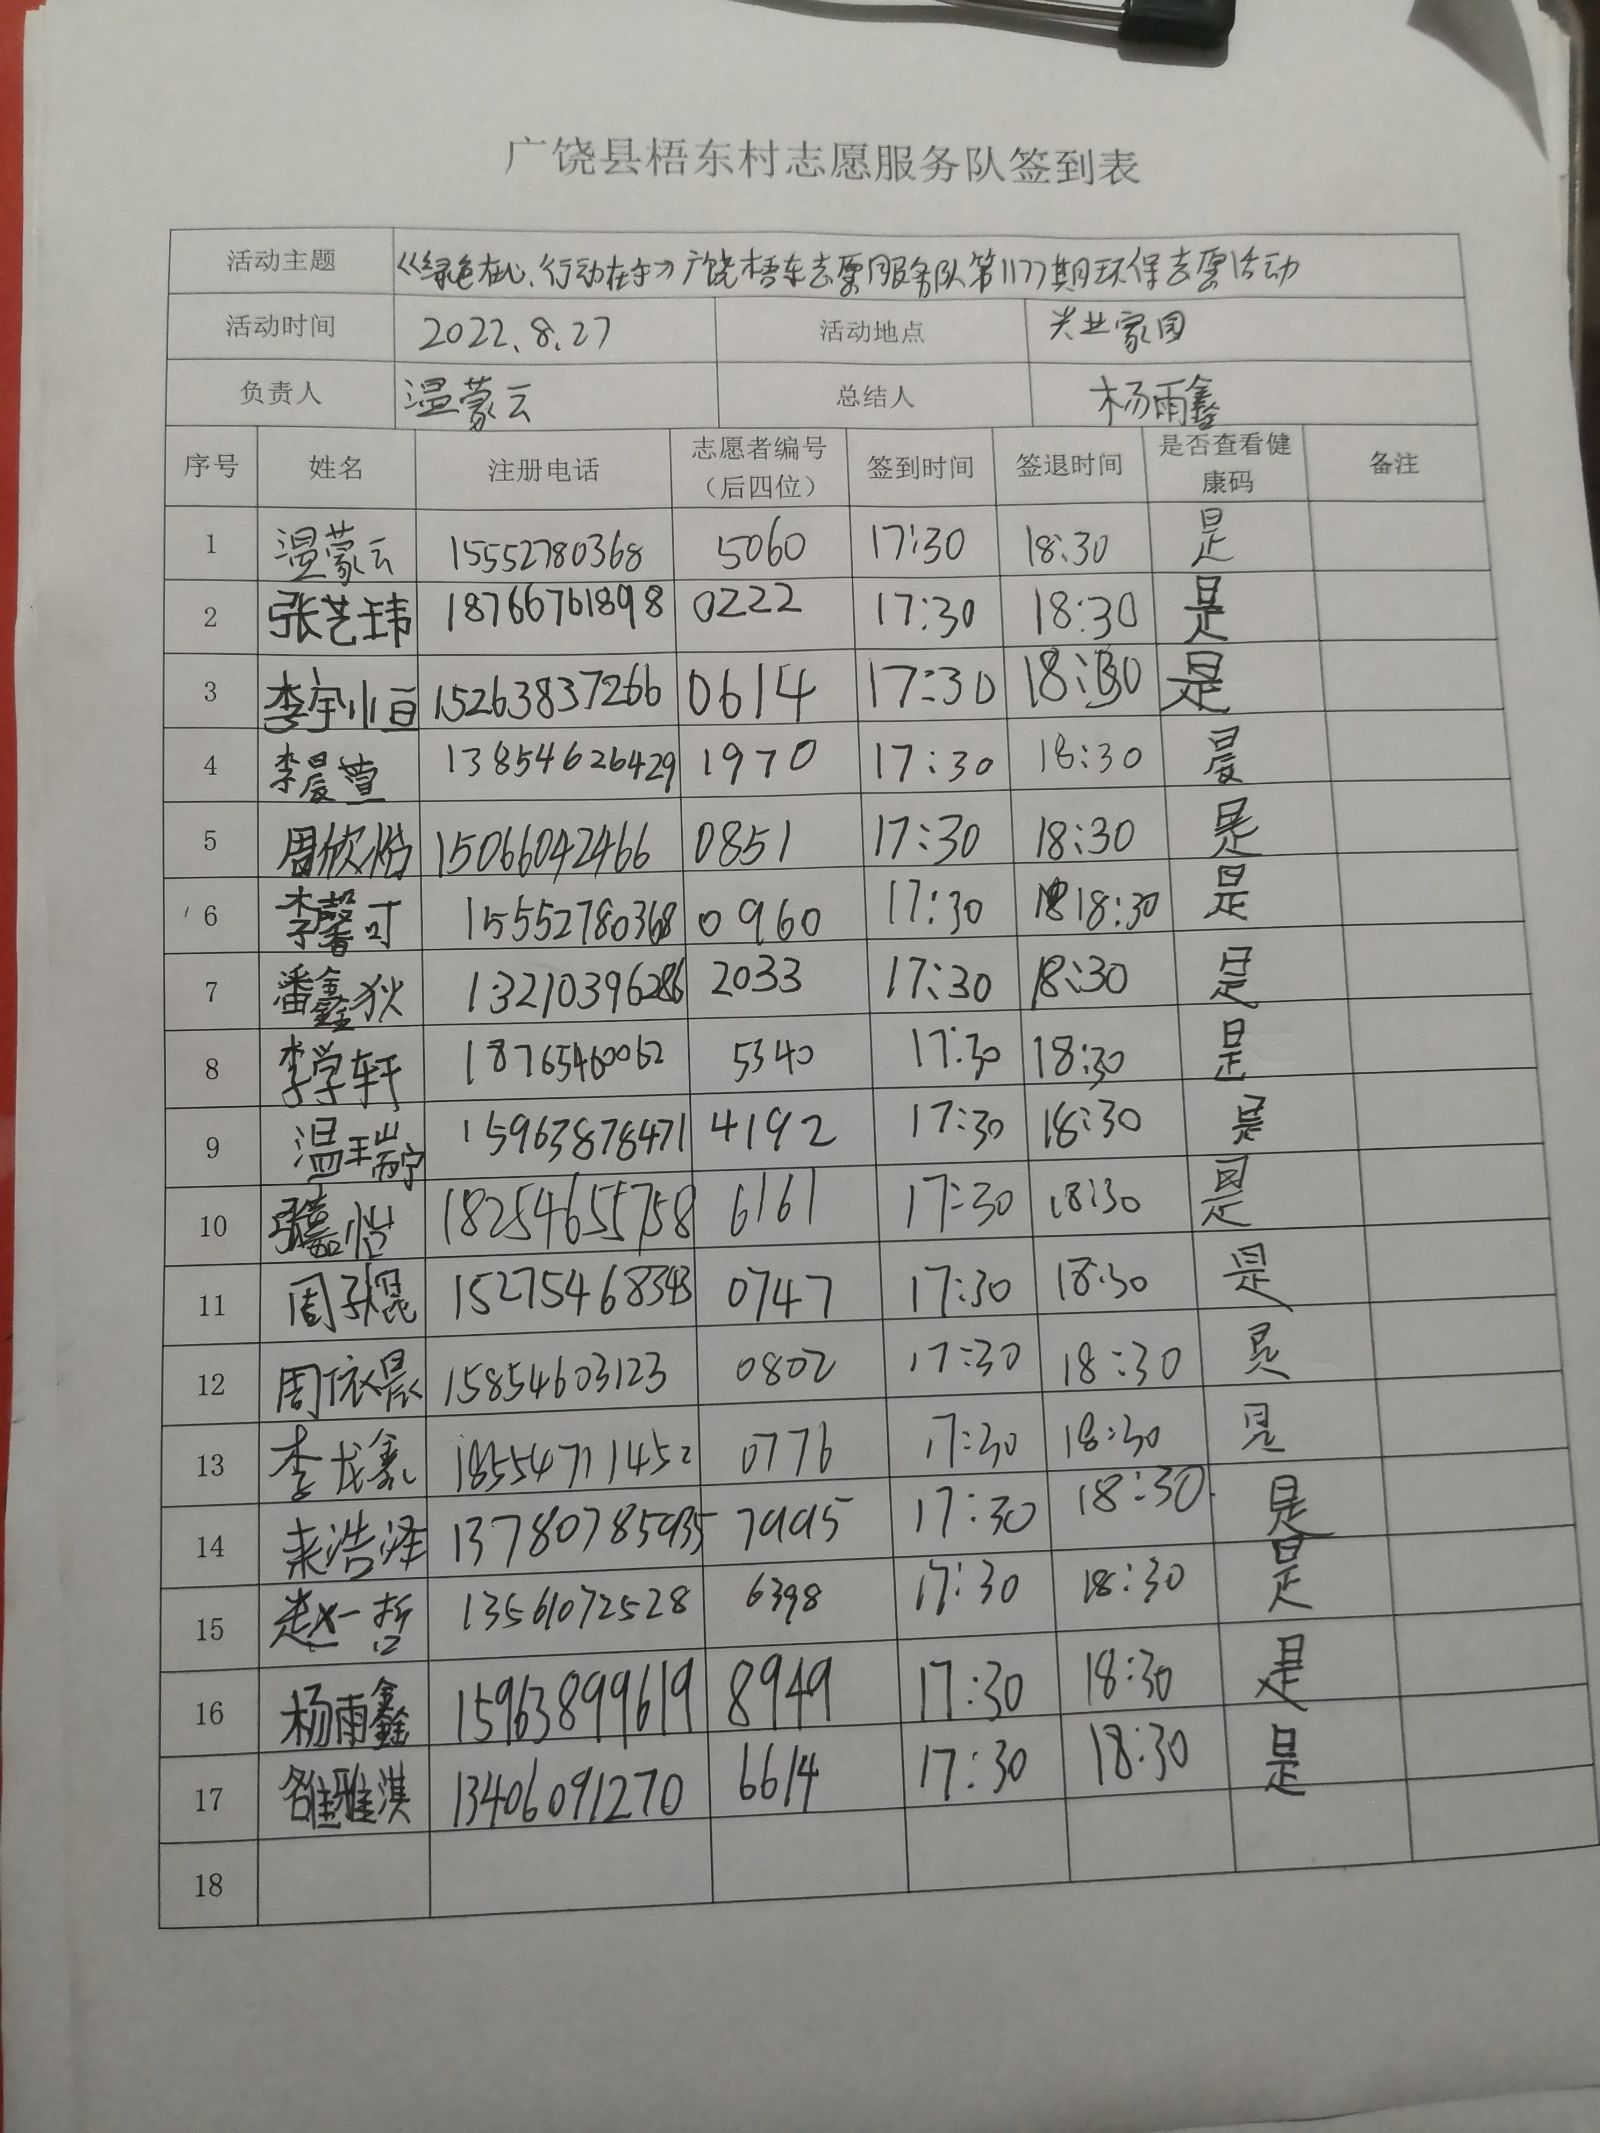 广饶县梧东村志愿服务队签到表
活动主题 《绿色在心、行动在手》广饶梧东志愿服务队第1177期环保志愿活动
活动时间 2022.8.27 活动地点 业家园
负责人 温蒙云 总结人 杨雨鑫
序号 姓名 注册电话 志愿者编号（后四位） 签到时间 签退时间 是否查看健康码 备注
1 温蒙云 15552780368 5060 17:30 18:30 是
2 张艺玮 18766761898 0222 17:30 18:30 是
3 李宇恒 15263837266 0614 17:30 18:30 是
4 李晨萱 13854626429 1970 17:30 18:30
5 周欣怡 15066042466 0851 17:30 18:30 是
6 李馨可 15552780368 0960 17:30 18:30 是
7 潘鑫狄 13210396286 2033 17:30 18:30 是
8 李学轩 18765460062 5340 17:30 18:30 是
9 温瑞宁 15963878471 4192 17:30 18:30 是
10 张嘉怡 18254655758 6161 17:30 18:30 是
11 周子焜 15275468343 0747 17:30 18:30 是
12 周依晨 15854603123 0802 17:30 18:30 是
13 李龙鑫 18554711452 0776 17:30 18:30 是
14 来浩泽 13780785935 7995 17:30 18:30 是
15 赵一哲 13561072528 6398 17:30 18:30 是
16 杨雨鑫 15963899619 8949 17:30 18:30 是
17 雒雅淇 13406091270 6614 17:30 18:30 是
18